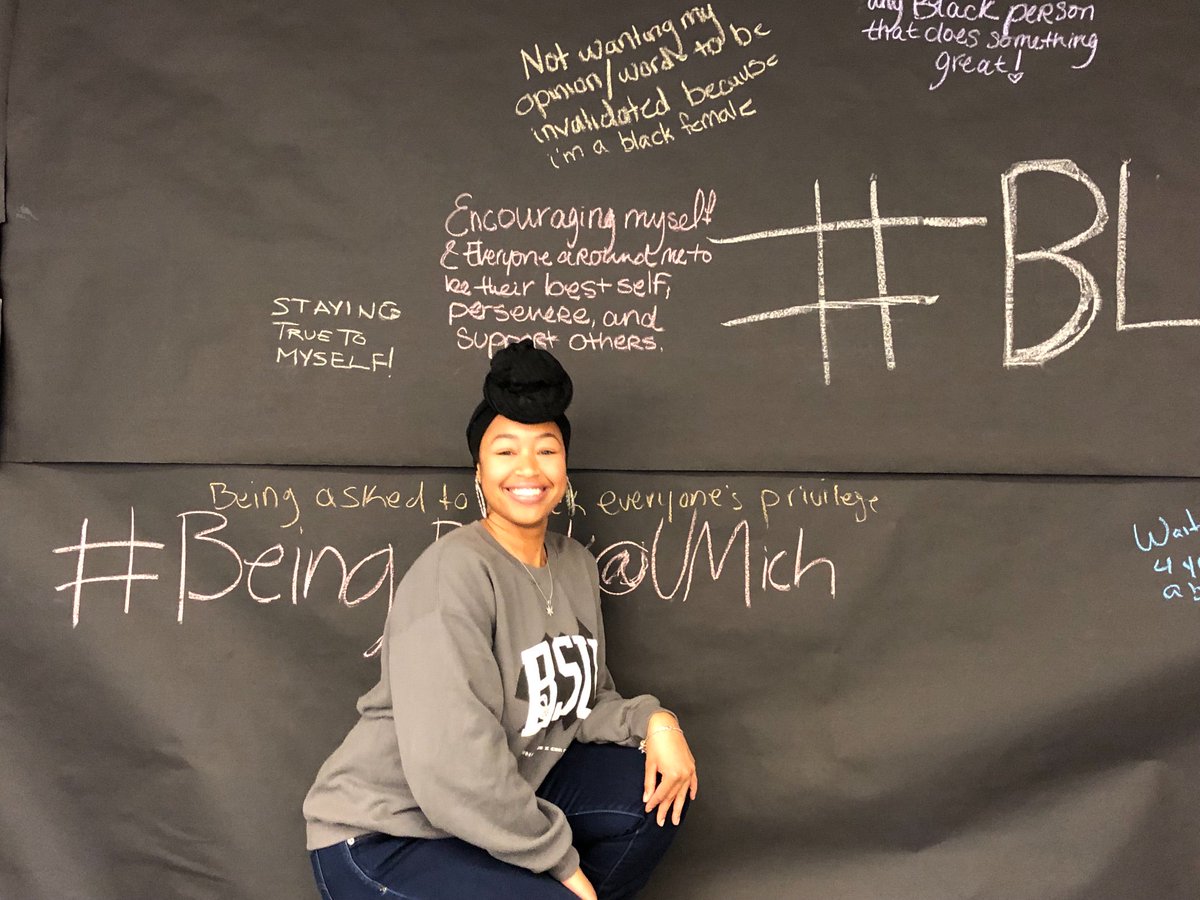 any Black person
that does something
great!
Not wanting my
opinion/word to be
invalidated because
i'm a black female
Encouraging myself
& Everyone around me to
be their best self,
persevere, and
support others.
STAYING
TRUE TO
MYSELF!
#BL
Being asked to everyone's privilege
#Being @UMich
Wait
4
BSU